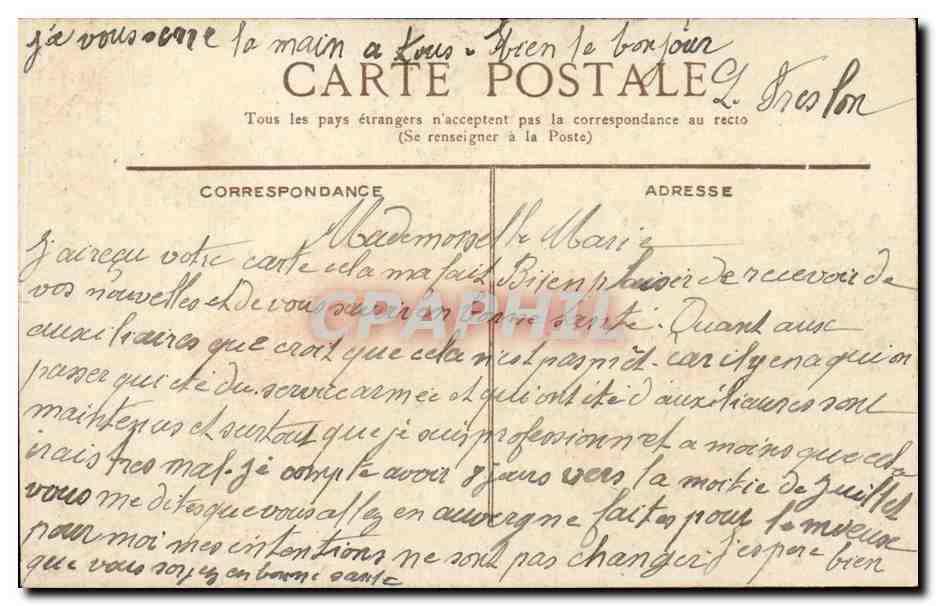 je vous serre la main a tous. bien le bonjour
L. Treslon
CARTE POSTALE
Tous les pays étrangers n'acceptent pas la correspondance au recto
(Se renseigner à la Poste)
CORRESPONDANCE
ADRESSE
Mademoiselle Marie
J'ai reçu votre carte cela ma fait Biien plaisir de recevoir de
vos nouvelles et De vous savoir en bonne santé. Quant aux
auxiliaires que croit que cela n'est pas prêt. car il y en a qui on
passer qui été du service armée et qui ont été d'auxiliaires sont
maintenus et surtout que je suis professionn et a moins que cela
irais tres mal. Je compte avoir 8 jours vers la moitie de Juillet
vous me dites que vous allez en auvergne faites pour le mieux
pour moi mes intentions ne sont pas changer j'espere bien
que vous soyez en bonne sante
CPAPHIL